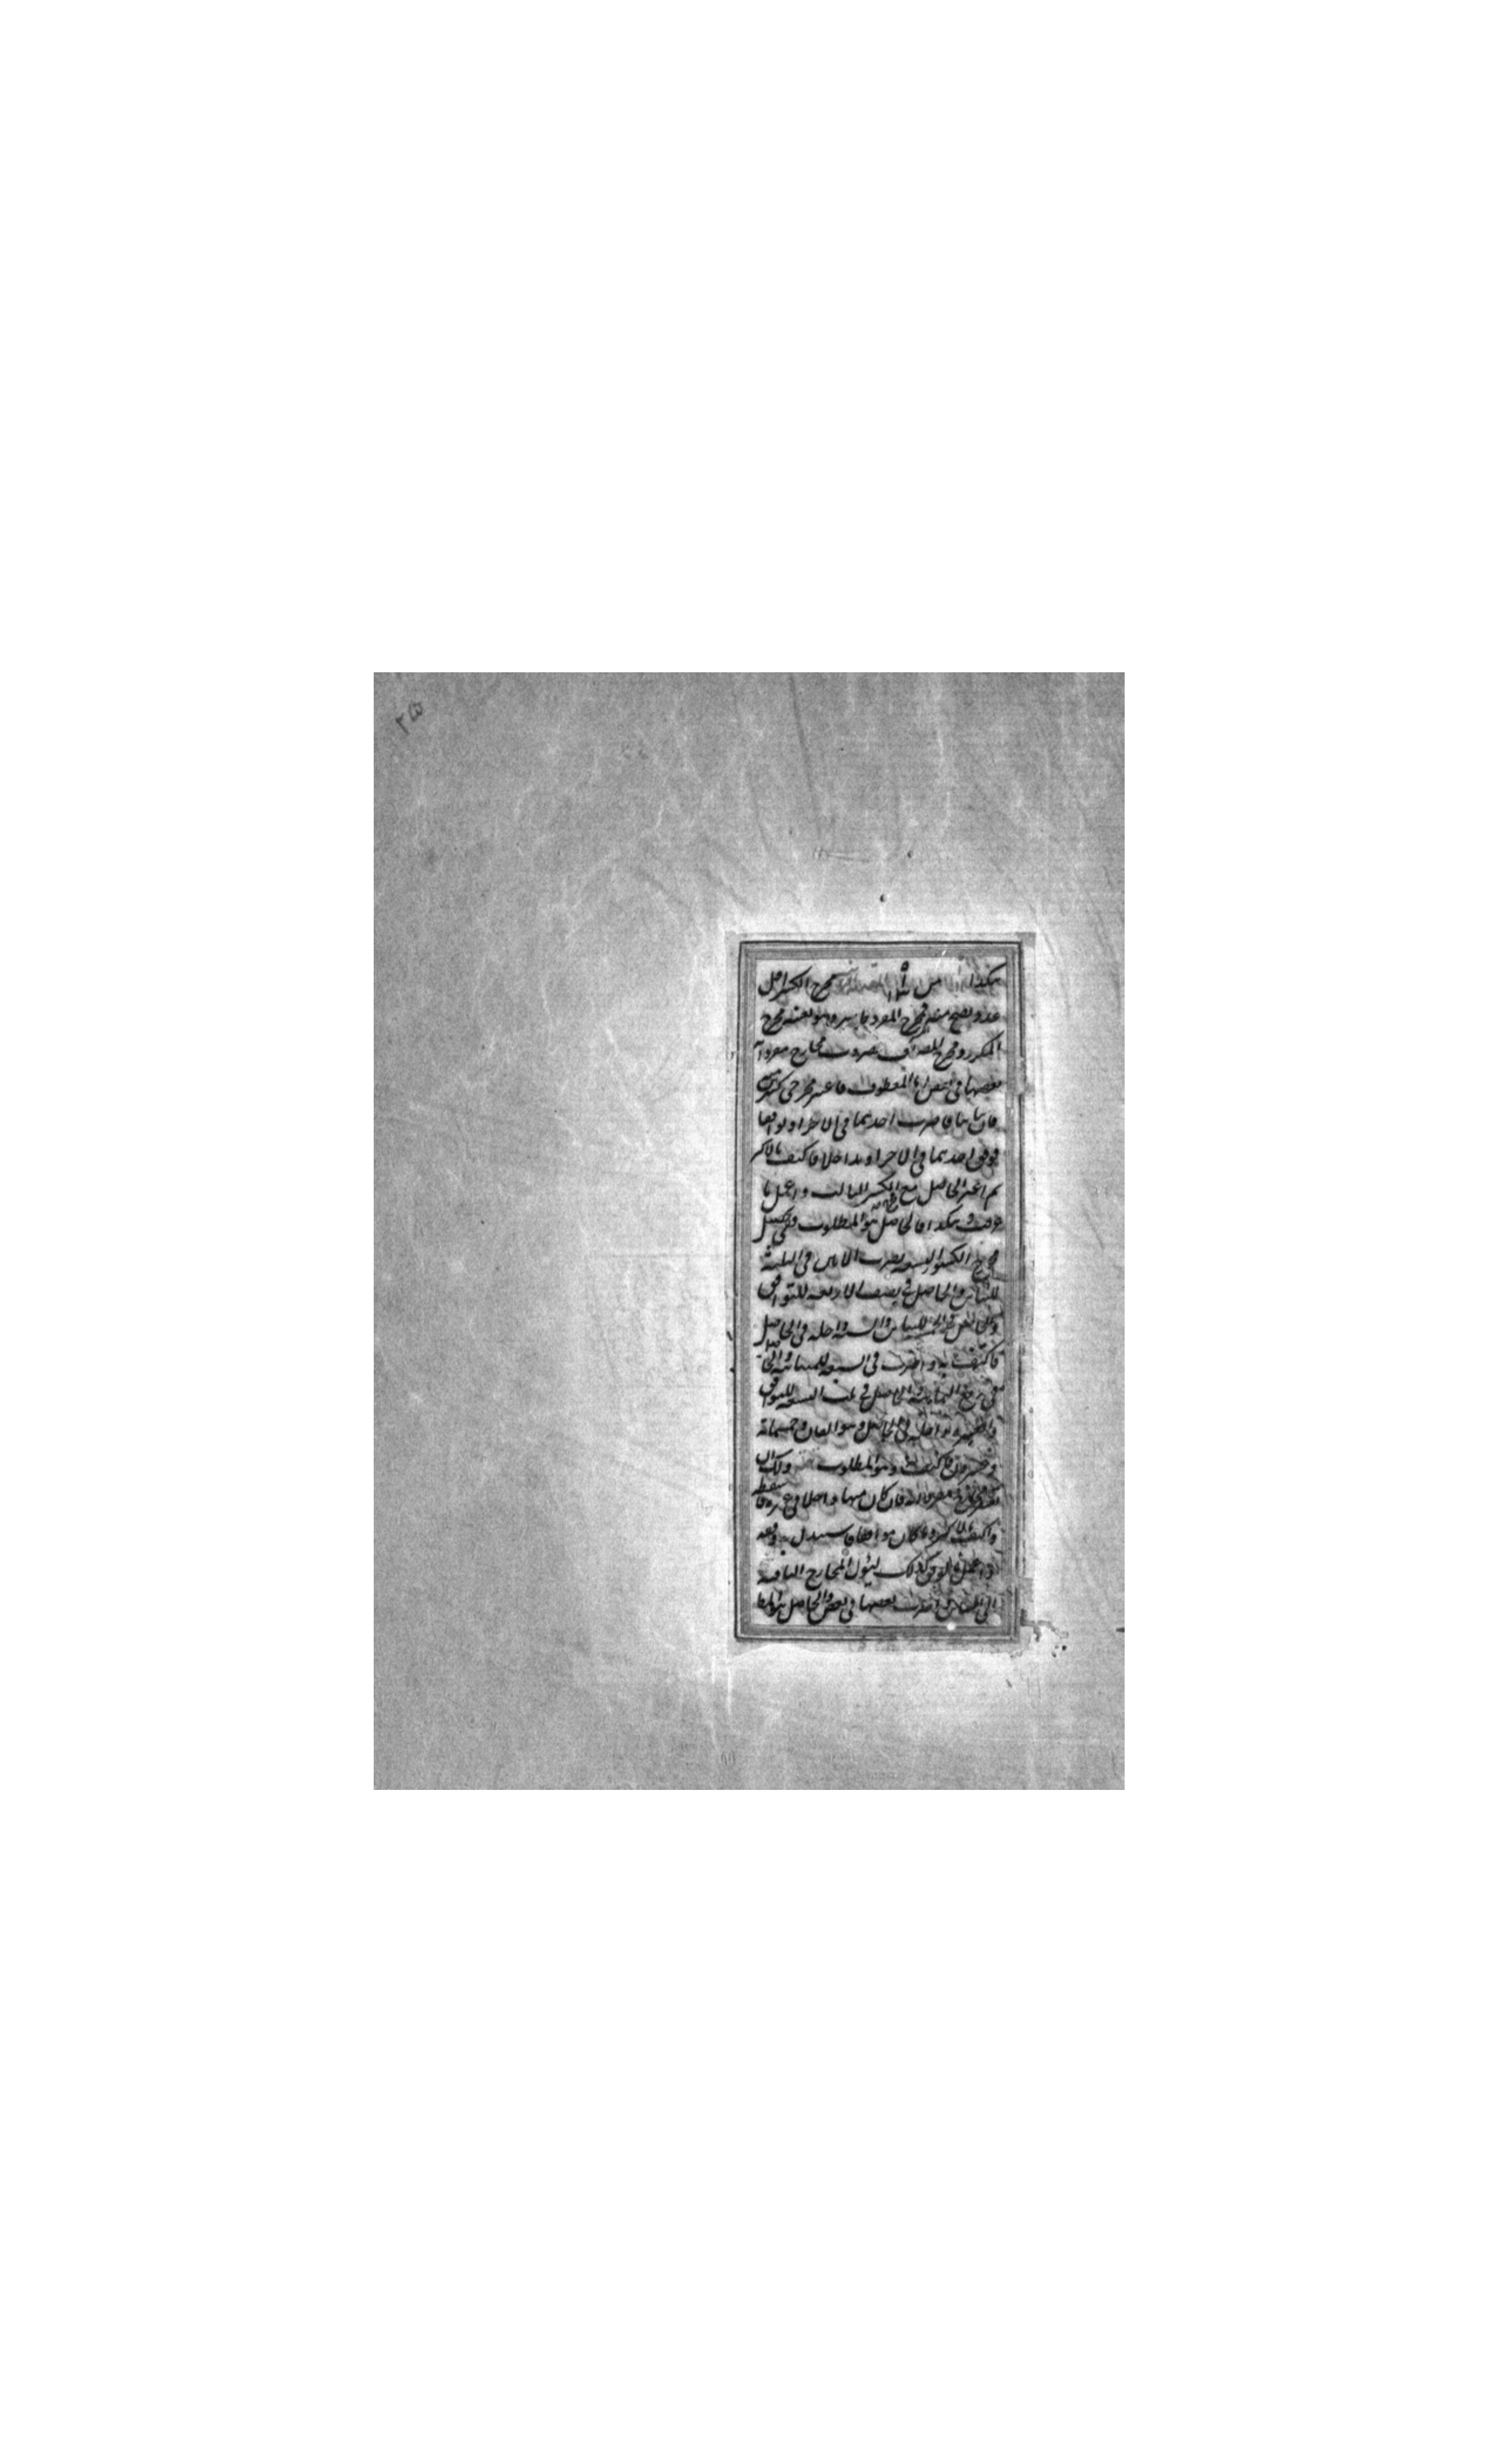 هكذا من مخرج الكسر اقل
عدد يصح منه فمخرج المفرد ظاهر وهو بعينه مخرج
المكرر ومخرج المضاف مضروب مخارج مفرداته
بعضها في بعض اما المعطوف فاعتبر مخرجي كسرين منه
فان تباينا فاضرب احدهما في الاخر او توافقا
فوفق احدهما في الاخر او تداخلا فاكتف بالاكثر
ثم اعتبر الحاصل مع مخرج الكسر الثالث واعمل ما
عرفت وهكذا فالحاصل هو المطلوب ففي تحصيل
مخرج الكسور التسعة تضرب الاثنين في الثلثة
للتباين والحاصل في نصف الاربعة للتوافق
والحاصل في الخمسة للتباين والستة داخلة في الحاصل
فاكتف به واضرب في السبعة للمباينة والحاصل
في ربع الثمانية والحاصل في ثلث التسعة للتوافق
والعشرة داخلة في الحاصل وهو الفان وخمسمائة
وعشرون فاكتف به وهو المطلوب ولك ان
تعتبر مخارج مفرداته فما كان منها داخلا في غيره فاسقطه
واكتف بالاكثر وما كان موافقا فاستبدل به وفقه
واعمل بالوفق كذلك ليئول المخارج الباقية
الى التباين فاضرب بعضها في بعض والحاصل هو المط